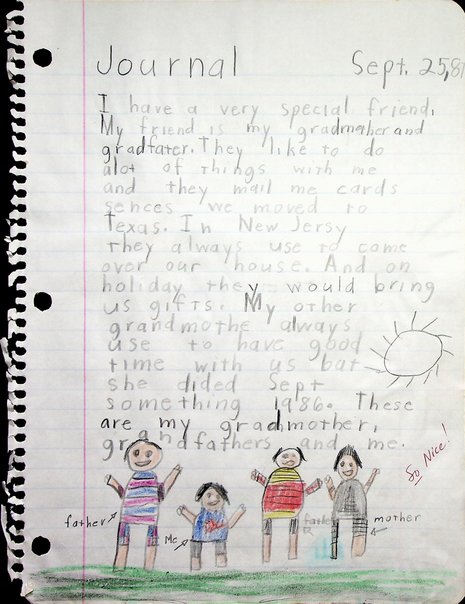 Journal
Sept. 25,87
I have a very special friend.
My friend is my gradmother and
gradfater. They like to do
alot of things with me
and they mail me cards
sences we moved to
Texas. In New Jersy
they always use to come
over our house. And on
holiday they would bring
us gifts. My other
grandmothe always
use to have good
time with us bat
she dided Sept
something 1986. These
are my gradmother,
grandfathers and me.
So Nice!
father
Me
father
mother